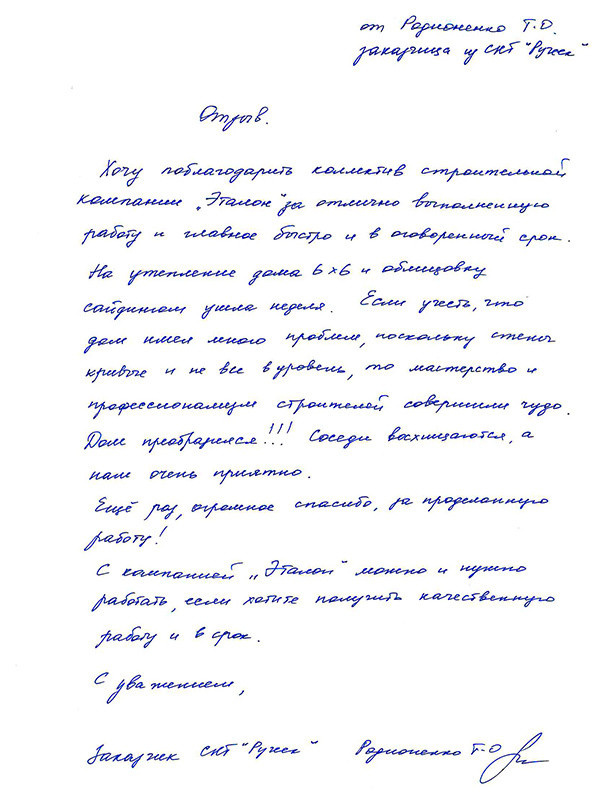 от Радионенко Т.О.
заказчица из СНТ "Ручеек"
Отзыв.
Хочу поблагодарить коллектив строительной
компании „Эталон" за отлично выполненную
работу и главное быстро и в оговоренный срок.
На утепление дома 6×6 и облицовку
сайдингом ушла неделя. Если учесть, что
дом имел много проблем, поскольку стены
кривые и не все в уровень, то мастерство и
профессионализм строителей совершили чудо.
Дом преобразился!!! Соседи восхищаются, а
нам очень приятно.
Ещё раз, огромное спасибо, за проделанную
работу!
С компанией „Эталон" можно и нужно
работать, если хотите получить качественную
работу и в срок.
С уважением,
Заказчик СНТ "Ручеек" Радионенко Т.О